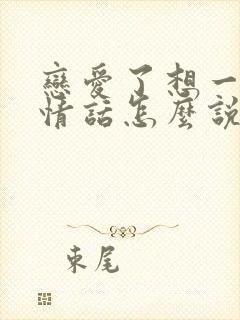 戀愛了想一
情話怎麼說
束尾